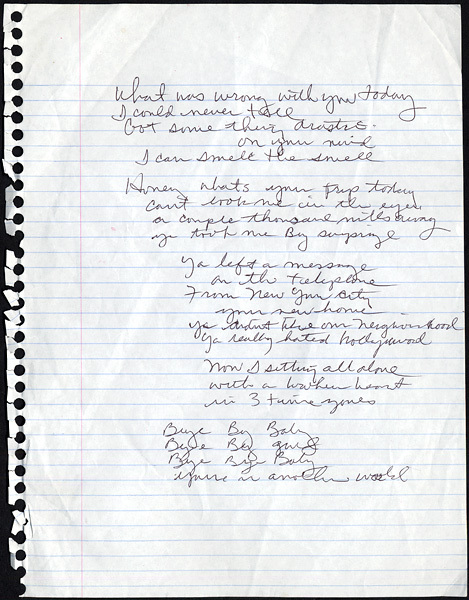 What was wrong with you today
I could never tell
Got some thing drastic
on your mind
I can smell the smell
Honey whats your trip today
cant look me in the eyes
a couple thousand miles away
ya took me By surprize
Ya left a message
on the telephone
From New York City
your new home
ya didnt like our neighborhood
ya really hated hollywood
Now I sitting all alone
with a broken heart
in 3 time zones
Bye By Baby
Bye By
Bye Bye Baby
youre in another world